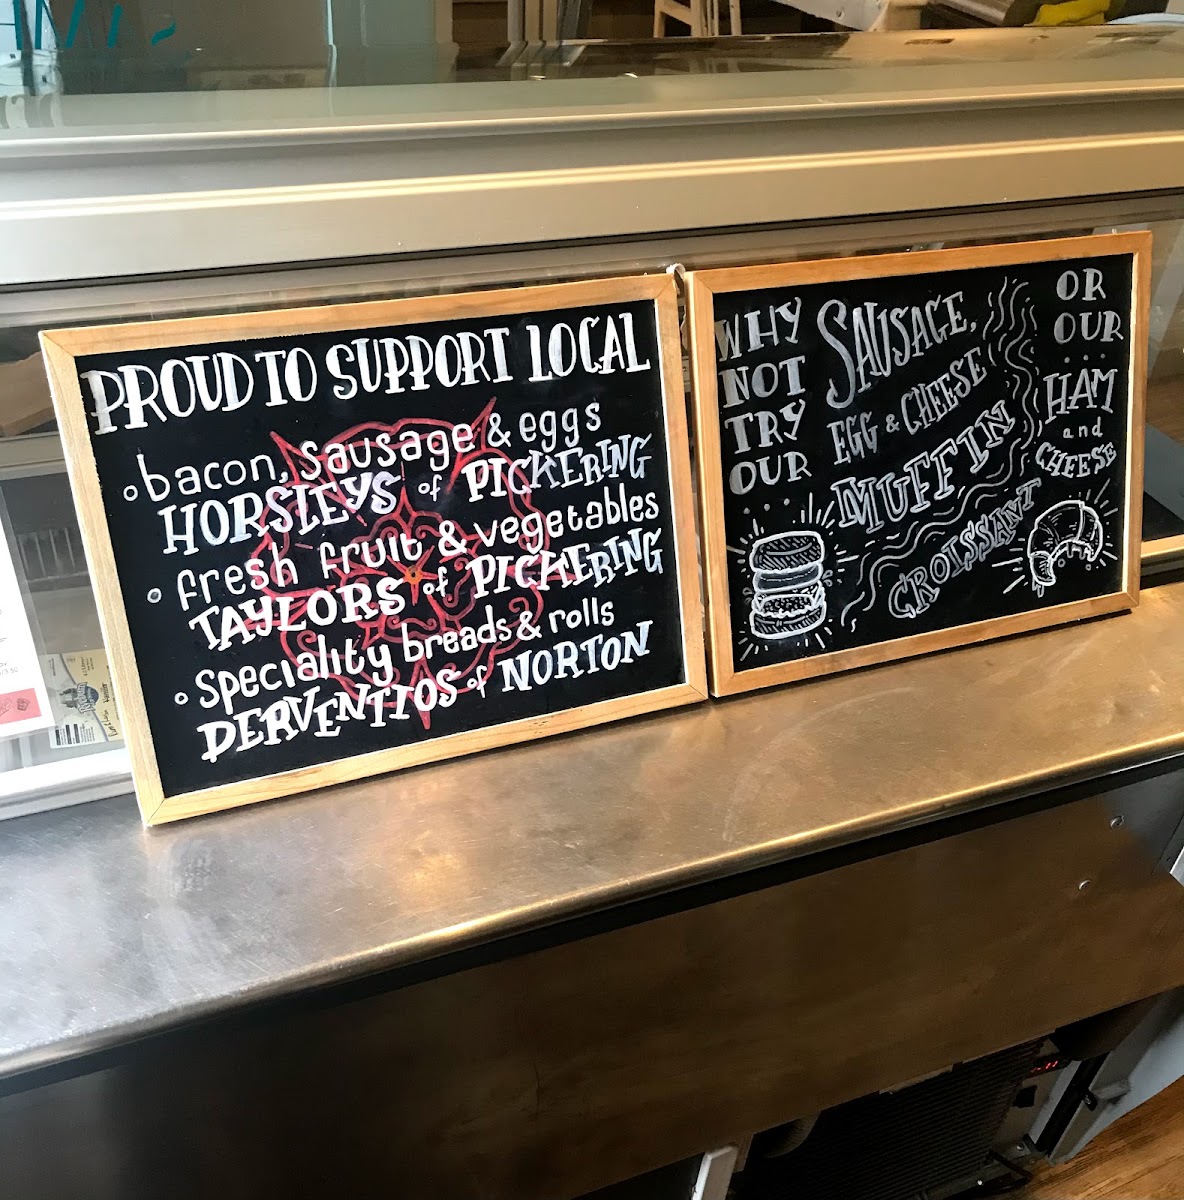 PROUD TO SUPPORT LOCAL
bacon, sausage & eggs
HORSLEYS of PICKERING
fresh fruit & vegetables
TAYLORS of PICKERING
speciality breads & rolls
DERVENTIOS of NORTON
WHY
NOT
TRY
OUR
SAUSAGE,
EGG & CHEESE
MUFFIN
OR
OUR
...
HAM
and
CHEESE
CROISSANT